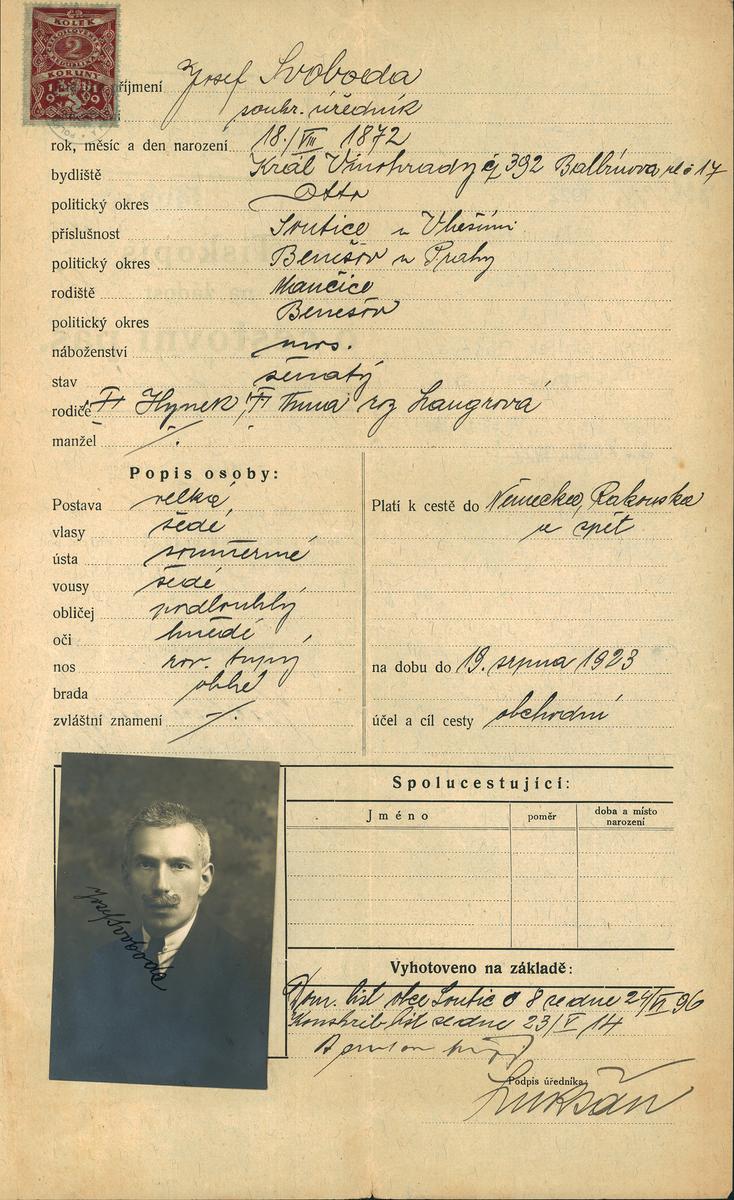 KOLEK
2
KORUNY
1919
příjmení Josef Svoboda
soukr. úředník
rok, měsíc a den narození 18./VIII 1872
bydliště Král Vinohrady č 392 Balbínova ul č 17
politický okres
příslušnost Soutice u Vlašimi
politický okres Benešov u Prahy
rodiště Mančice
politický okres Benešov
náboženství
stav ženatý
rodiče Hynek, Anna roz Langrová
manžel /.
Popis osoby:
Postava velká
vlasy šedé
ústa souměrné
vousy šedé
obličej podlouhlý
oči hnědé
nos rov. tupý
brada oblé
zvláštní znamení /.
Platí k cestě do Německa, Rakouska
a zpět
na dobu do 19. srpna 1923
účel a cíl cesty obchodní
Josef Svoboda
Spolucestující:
Jméno poměr doba a místo narození
Vyhotoveno na základě:
Dom. list obce Soutic č 8 ze dne 24/VI 96
Konskrib list ze dne 23/V 14
Podpis úředníka:
Lukšan